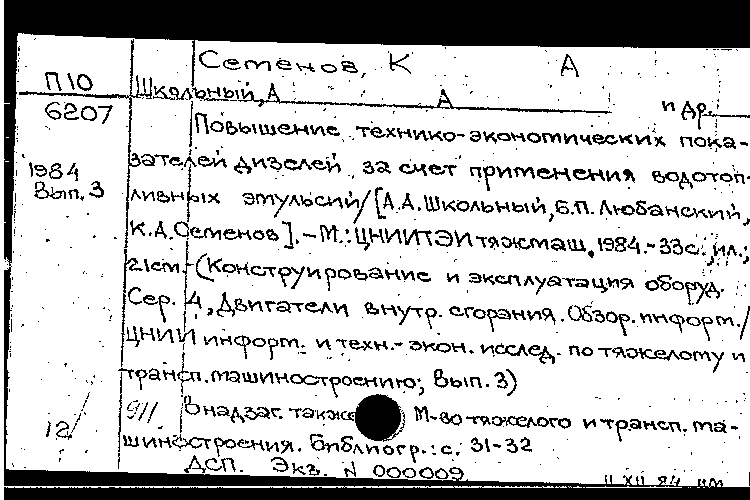 Семенов, К А
П10
Школьный, А А и др.
6207
Повышение технико-экономических пока-
1984
зателей дизелей за счет применения водотоп-
Вып. 3
ливных эмульсий/[А.А.Школьный, Б.П.Любанский,
К.А.Семенов].-М.:ЦНИИТЭИтяжмаш, 1984.-33с.,ил.;
21см.-(Конструирование и эксплуатация оборуд.
Сер. 4, Двигатели внутр. сгорания. Обзор.информ./
ЦНИИ информ. и техн.-экон. исслед. по тяжелому и
трансп.машиностроению; Вып. 3)
В надзаг. также М-во тяжелого и трансп. ма-
12/
шиностроения. Библиогр.: с. 31-32
ДСП. Экз. N 000009
11 XII 84